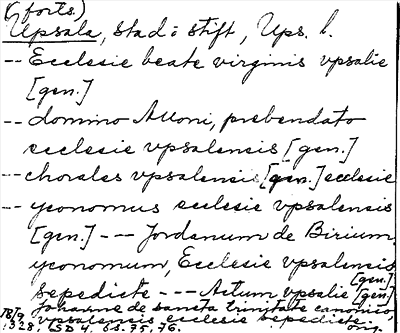 (forts.)
Upsala, stad o stift, Ups. l.
-- Ecclesie beate virginis vpsalie
[gen.]
-- domino Attoni, prebendato
ecclesie vpsalensis [gen.]
-- chorales vpsalensis [gen.] ecclesie
-- yconomus ecclesie vpsalensis
[gen.] --- Jordanum de Birium,
yconomum, Ecclesie vpsalensis [gen.]
sepedicte --- Actum vpsalie [gen.]
Johanne de sancta trinitate canonico
vpsalensis ecclesie sepedicte
18/9 1328. SD 4. s. 75, 76. orig.